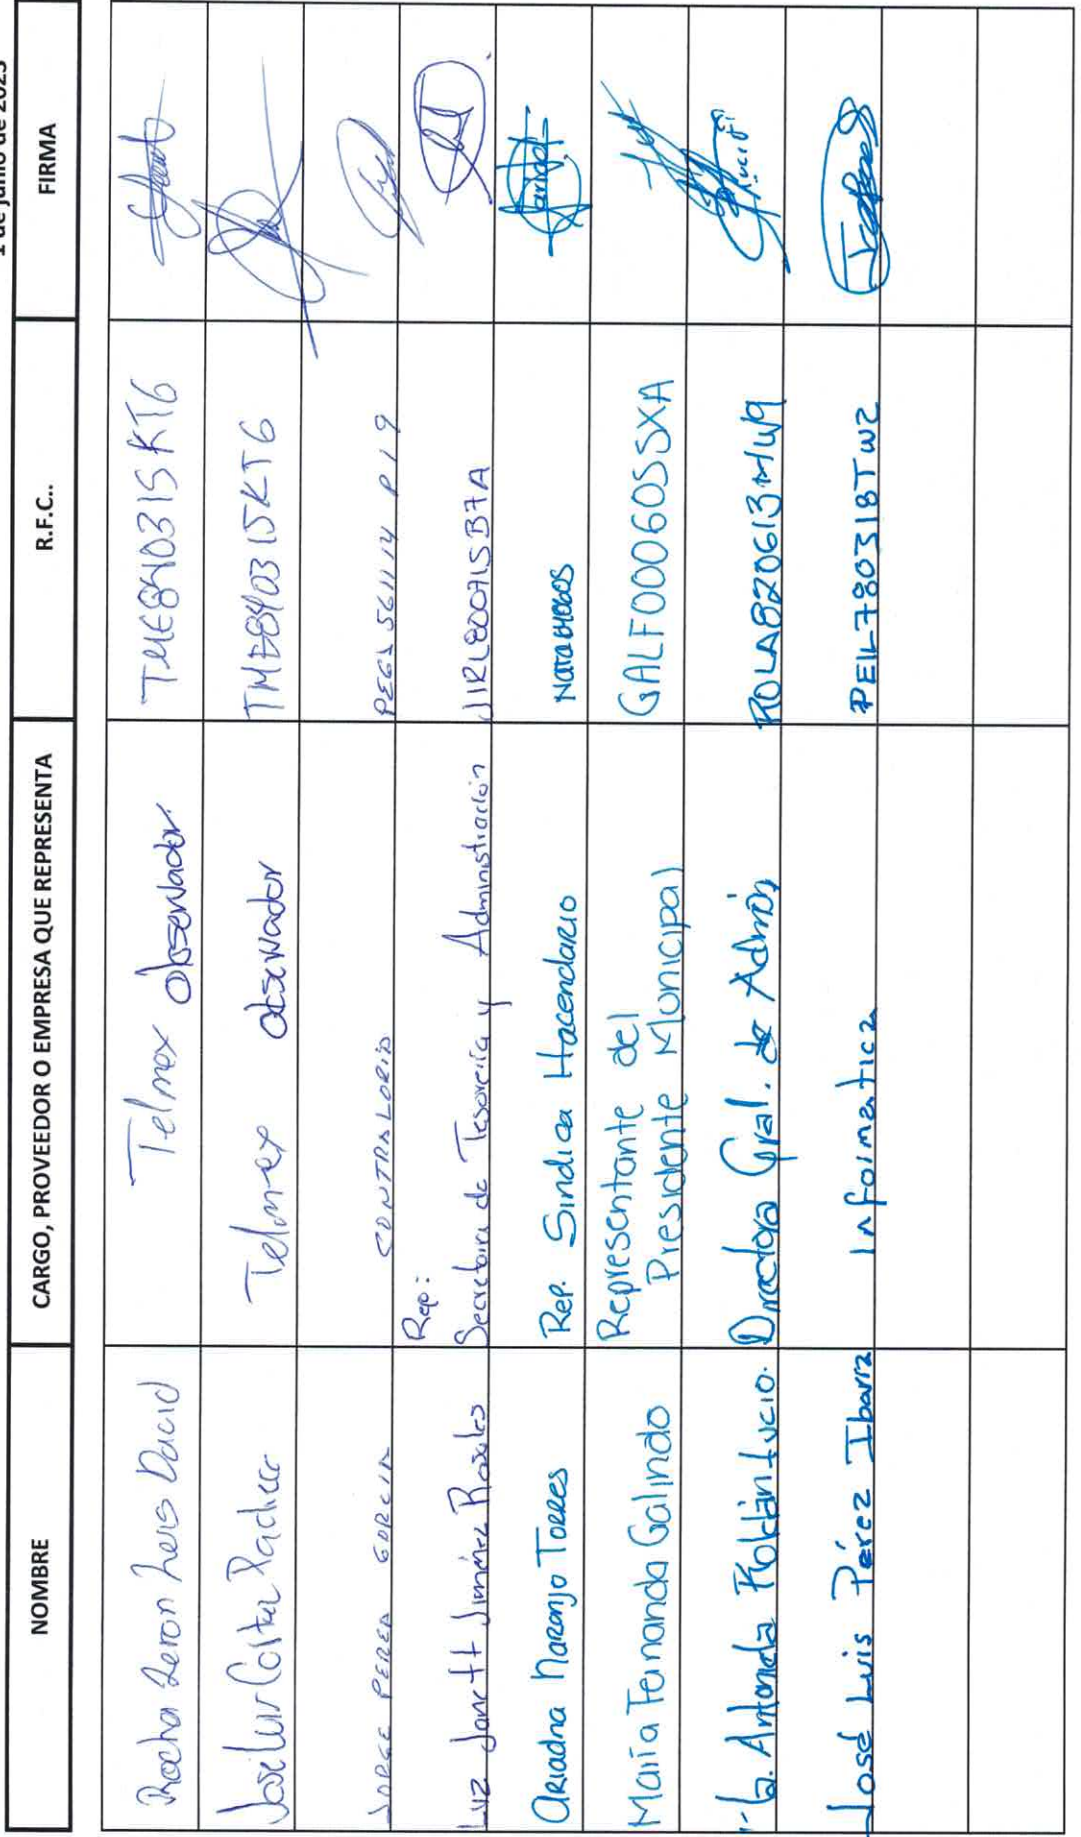 1 de junio de 2023
NOMBRE CARGO, PROVEEDOR O EMPRESA QUE REPRESENTA R.F.C.. FIRMA
Rocha Zeron Luis David Telmex observador TME840315KT6
Jose Luis Cortez Pacheco Telmex observador TME840315KT6
JORGE PEREA GARCIA CONTRALORIO PEGJ561114 P19
Rep:
Luz Janett Jiménez Rosales Secretaria de Tesorería y Administración JIRL800715B7A
Ariadna Naranjo Torres Rep. Sindica Hacendario
María Fernanda Galindo Representante del GALF000605SXA
Presidente Municipal
Ma. Antonia Roldán Lucio. Directora Gral. de Admón ROLA820613MW9
José Luis Pérez Ibarra Informatica PEIL780318TW2